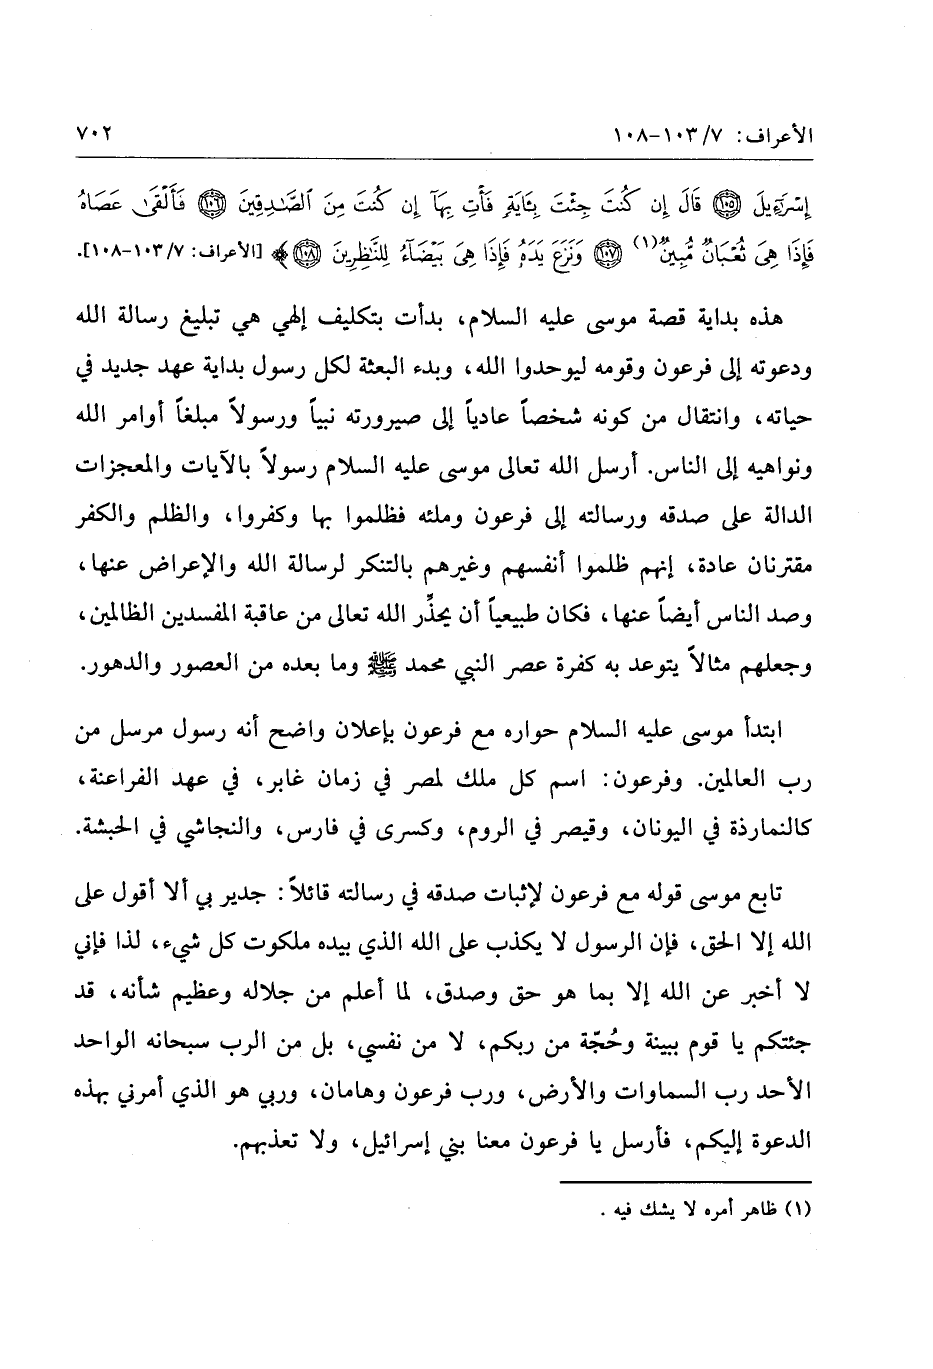 الأعراف: ٧/ ١٠٣-١٠٨ ٧٠٢
إِسْرَٰٓءِيلَ ١٠٥ قَالَ إِن كُنتَ جِئْتَ بِـَٔايَةٍ فَأْتِ بِهَآ إِن كُنتَ مِنَ ٱلصَّـٰدِقِينَ ١٠٦ فَأَلْقَىٰ عَصَاهُ
فَإِذَا هِىَ ثُعْبَانٌ مُّبِينٌ(١) ١٠٧ وَنَزَعَ يَدَهُۥ فَإِذَا هِىَ بَيْضَآءُ لِلنَّـٰظِرِينَ ١٠٨﴾ [الأعراف: ٧/ ١٠٣-١٠٨].
هذه بداية قصة موسى عليه السلام، بدأت بتكليف إلهي هي تبليغ رسالة الله
ودعوته إلى فرعون وقومه ليوحدوا الله، وبدء البعثة لكل رسول بداية عهد جديد في
حياته، وانتقال من كونه شخصاً عادياً إلى صيرورته نبياً ورسولاً مبلغاً أوامر الله
ونواهيه إلى الناس. أرسل الله تعالى موسى عليه السلام رسولاً بالآيات والمعجزات
الدالة على صدقه ورسالته إلى فرعون وملئه فظلموا بها وكفروا، والظلم والكفر
مقترنان عادة، إنهم ظلموا أنفسهم وغيرهم بالتنكر لرسالة الله والإعراض عنها،
وصد الناس أيضاً عنها، فكان طبيعياً أن يحذِّر الله تعالى من عاقبة المفسدين الظالمين،
وجعلهم مثالاً يتوعد به كفرة عصر النبي محمد ﷺ وما بعده من العصور والدهور.
ابتدأ موسى عليه السلام حواره مع فرعون بإعلان واضح أنه رسول مرسل من
رب العالمين. وفرعون: اسم كل ملك لمصر في زمان غابر، في عهد الفراعنة،
كالنمارذة في اليونان، وقيصر في الروم، وكسرى في فارس، والنجاشي في الحبشة.
تابع موسى قوله مع فرعون لإثبات صدقه في رسالته قائلاً: جدير بي ألا أقول على
الله إلا الحق، فإن الرسول لا يكذب على الله الذي بيده ملكوت كل شيء، لذا فإني
لا أخبر عن الله إلا بما هو حق وصدق، لما أعلم من جلاله وعظيم شأنه، قد
جئتكم يا قوم ببينة وحُجّة من ربكم، لا من نفسي، بل من الرب سبحانه الواحد
الأحد رب السماوات والأرض، ورب فرعون وهامان، وربي هو الذي أمرني بهذه
الدعوة إليكم، فأرسل يا فرعون معنا بني إسرائيل، ولا تعذبهم.
(١) ظاهر أمره لا يشك فيه .